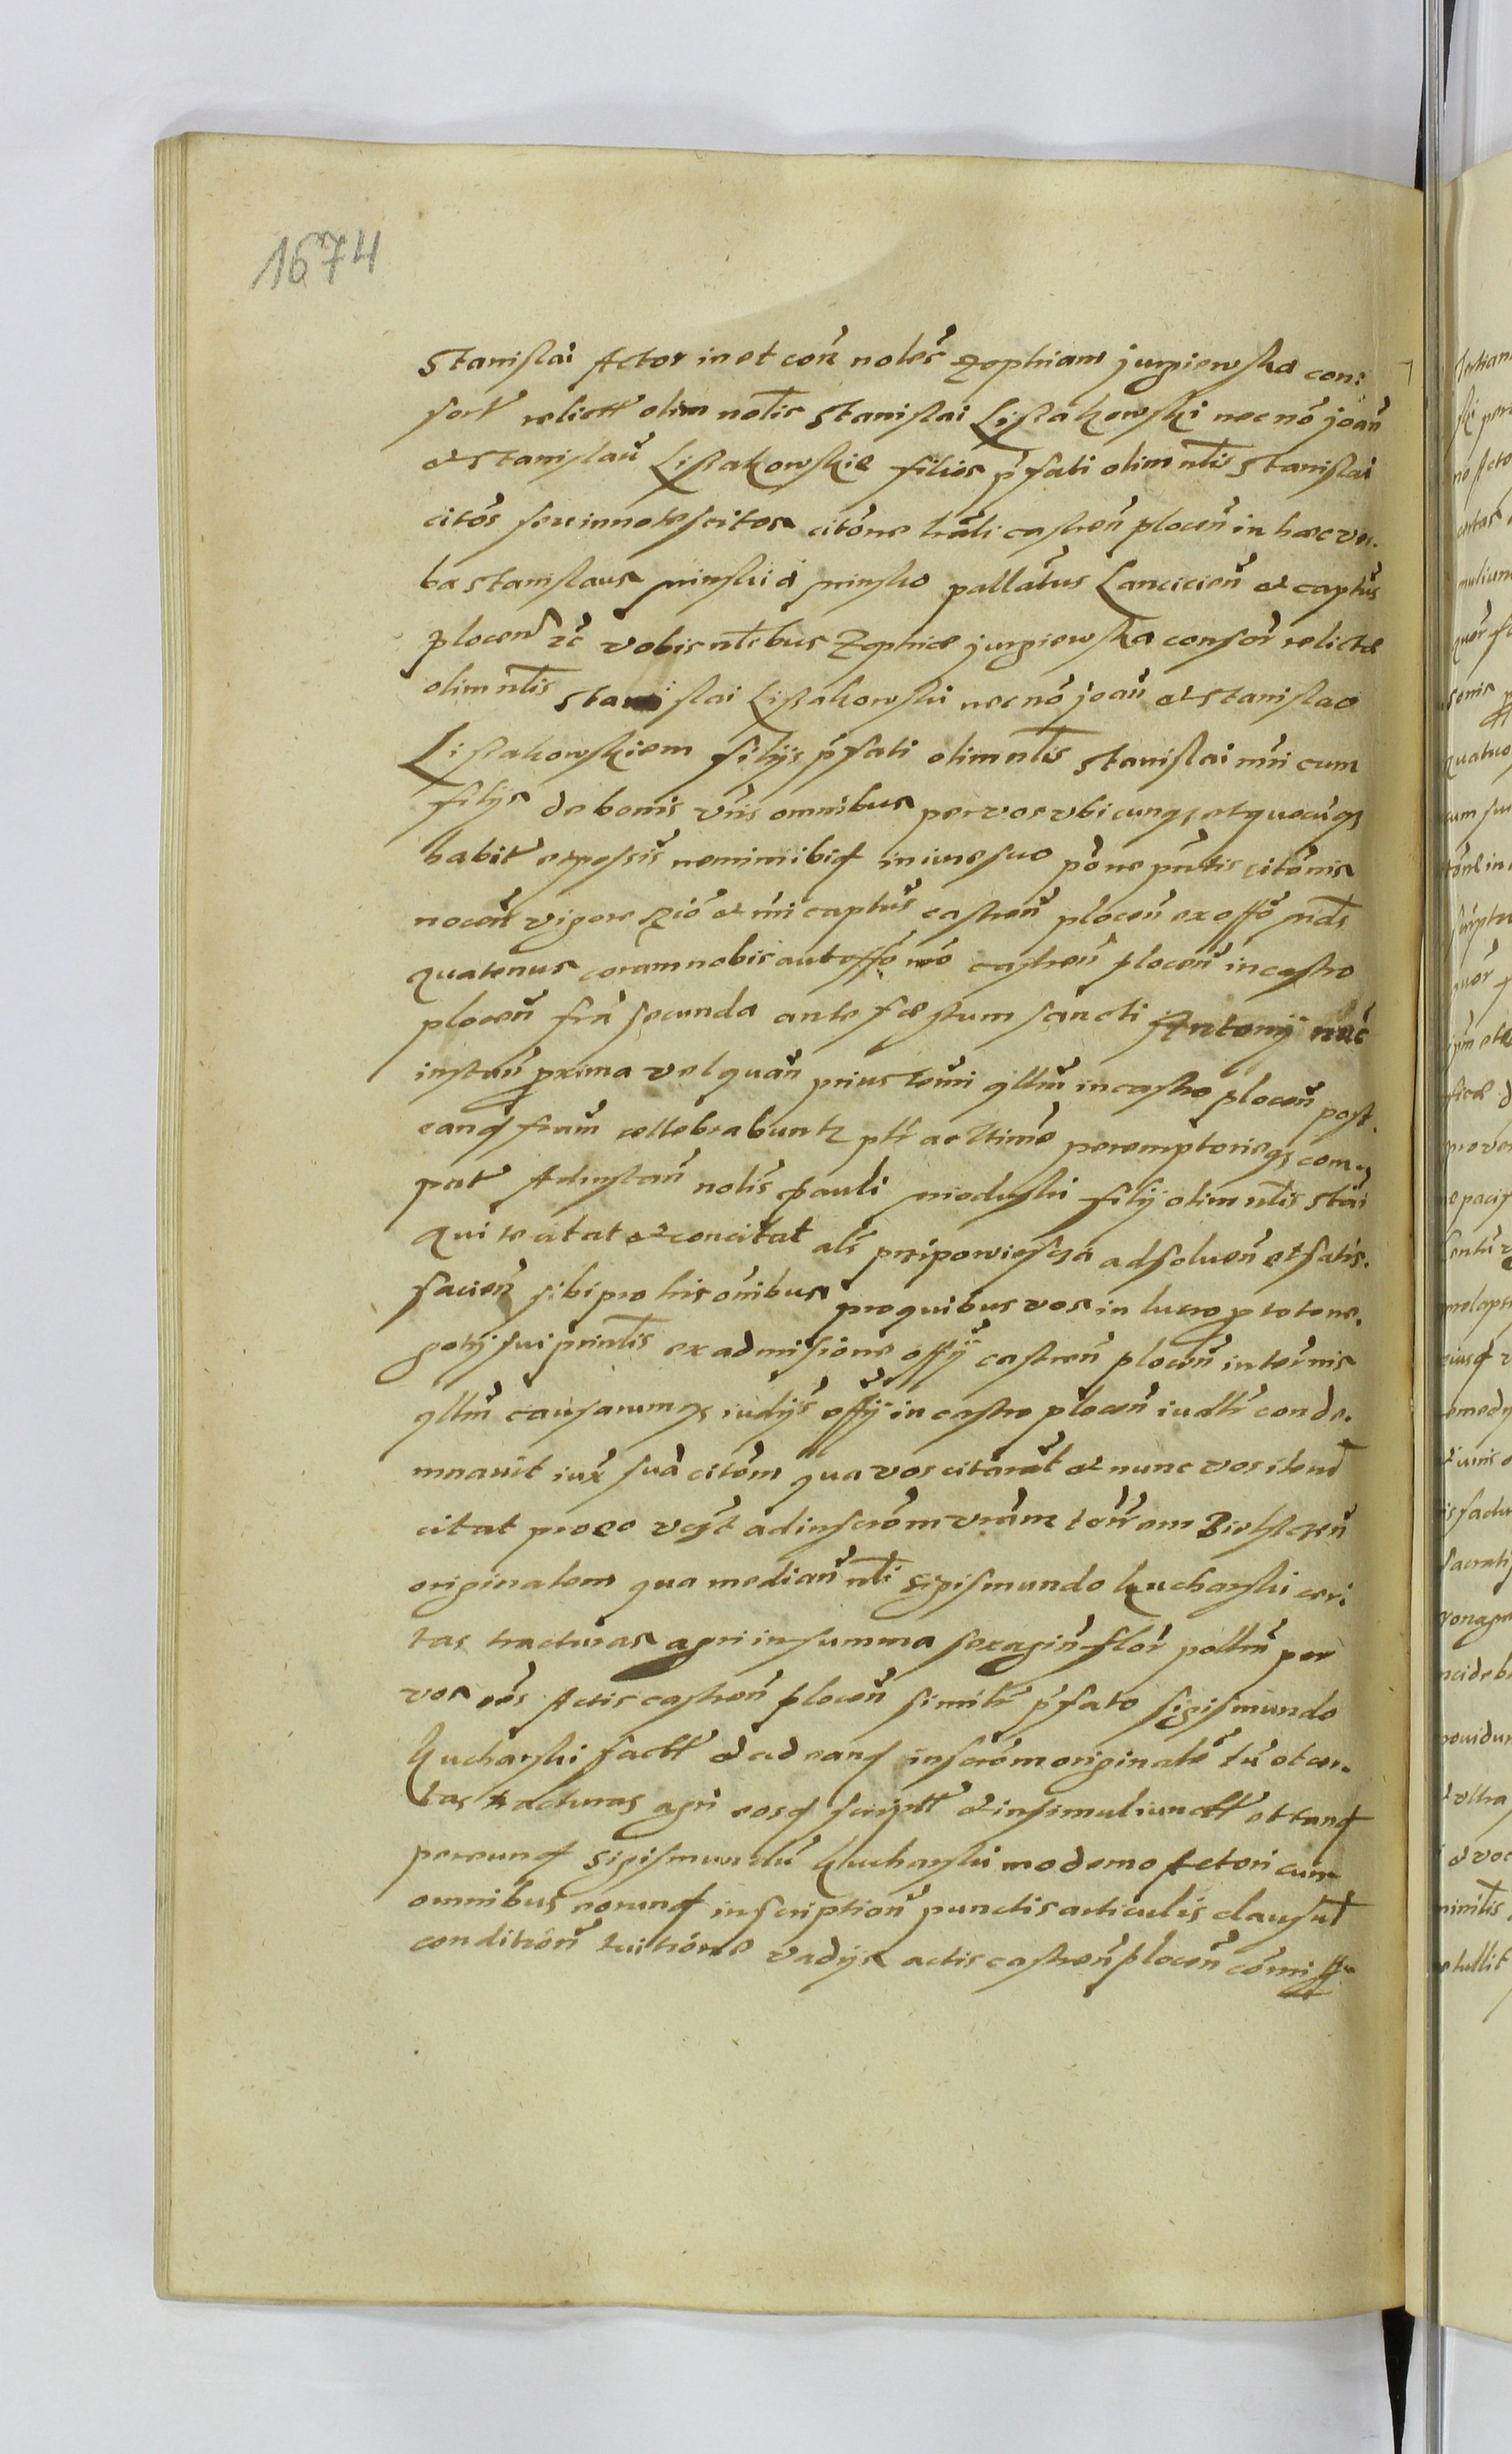 1674
Stanislai Actor in et con͠ noles͠ Zophiam jurgiewska con:
sort͠ relictt olim nolis Stanislai Lissakowski nec nō joan͠
et Stanislau͠ Lissakowskie filios p͠fati olim nlis Stanislai
citōs seu innotescitos citōne lrāli castren͠ plocen͠ in haec ver.
ba Stanislaus minski á minsko pallatus Lancicien͠ et captus͠
plocen͠ &c vobis nlibus Zophiae jurgiewska consor͠ relictae
olim nlis Stanislai Lissakowski nec nō joan͠ et Stanislao
Lissakowskiem filijs p͠fati olim nlis Stanislai mn͠i cum
filijs de bonis vr͠is omnibus per vos ubicunqꝫ et quaecūqꝫ
habit͠ et possis͠ nemini ibid in iure suo pōne pn͠tis citōnis
nocen͠ vigore
quatenus coram nobis aut offō nrō castren͠ plocen͠ in castro
plocen͠ frā secunda ante festum sancti Antonij nūc
instan͠ proxima vel quan͠ prius termi͠ qllm͠ in castro plocen͠ post
eand feriam͠ cellebrabuntꝫ ptr͠ ac ltime͠ peremptorieqꝫ com.
peat Ad instan͠ nolis Pauli mioduski filij olim nlis Stai͠
Qui te citat et concitat als͠ pripowiesca ad soluen͠ et satis.
facien͠ sibi pro his ōnibus pro quibus vos in lucro p toto ne.
gotij sui prinlis ex admisione offij͠ castren͠ plocen͠ in termis͠
qllm͠ causarumqꝫ iudijs͠ offij͠ in castro plocen͠ iudltr͠ conde.
mnauit iux͠ suā citōm qua vos citarūt et nunc vos itend
citat pro eo vt͠ ad inscrōm vr͠am terr͠em Bielscen͠
originalem qua median͠ nli Sigismundo Kucharski cer:
tas tracturas agri in summa sexagin͠ flor͠ pollm͠ per
vos eōs Actis castren͠ plocen͠ similr͠ p͠fato Sigismundo
Kucharski factt et ad eand inscrōm originalē tū et cer.
tas tracturas agri eosd scriptt et insimul iunctt et tand
per eund Sigismundū Kucharski moderno Actori cum
omnibus eorund inscription͠ punctis articulis clausul͠
condition͠ tuitiōne vadijs actis castren͠ plocen͠ cōmissu